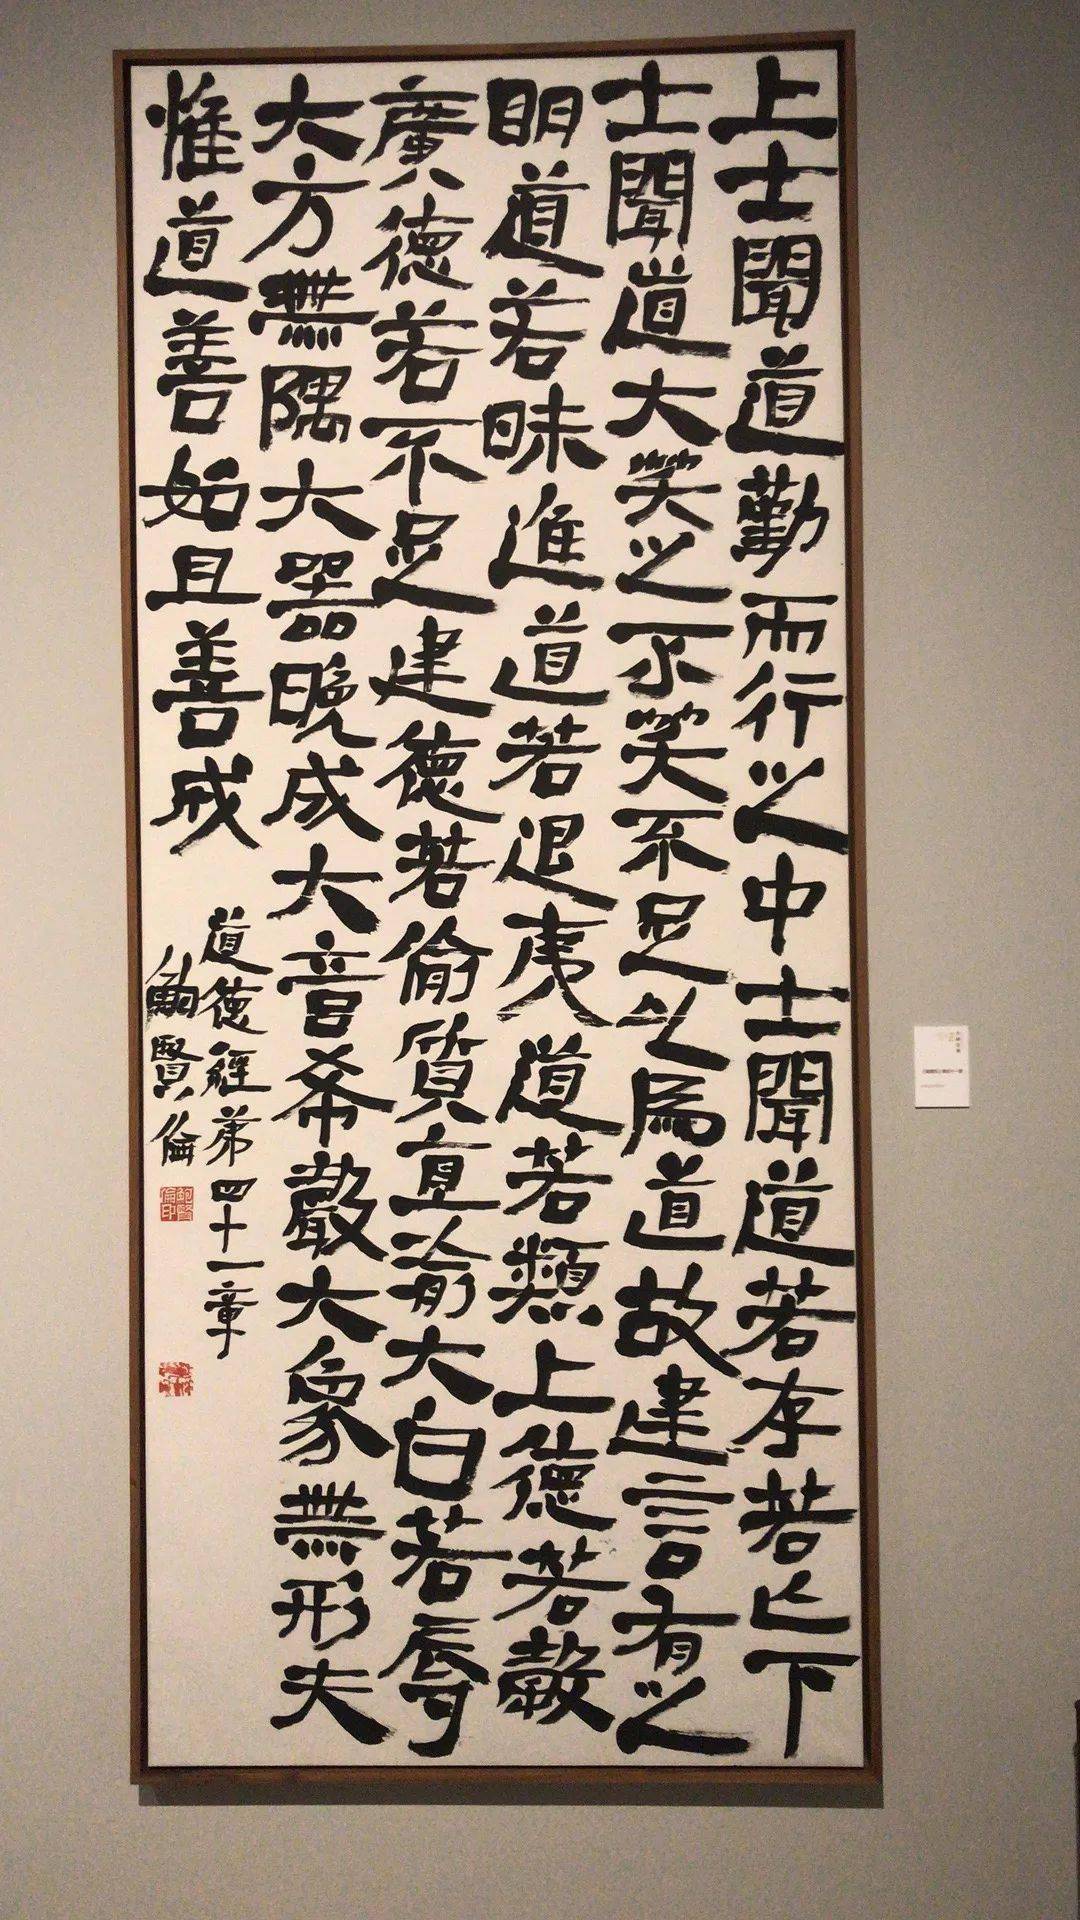 上士聞道勤而行之中士聞道若存若亡下
士聞道大笑之不笑不足以為道故建言有之
明道若昧進道若退夷道若類上德若穀
廣德若不足建德若偷質直渝大白若辱
大方無隅大器晚成大音希聲大象無形夫
惟道善始且善成
道德經第四十一章
鮑賢倫
鮑賢倫印